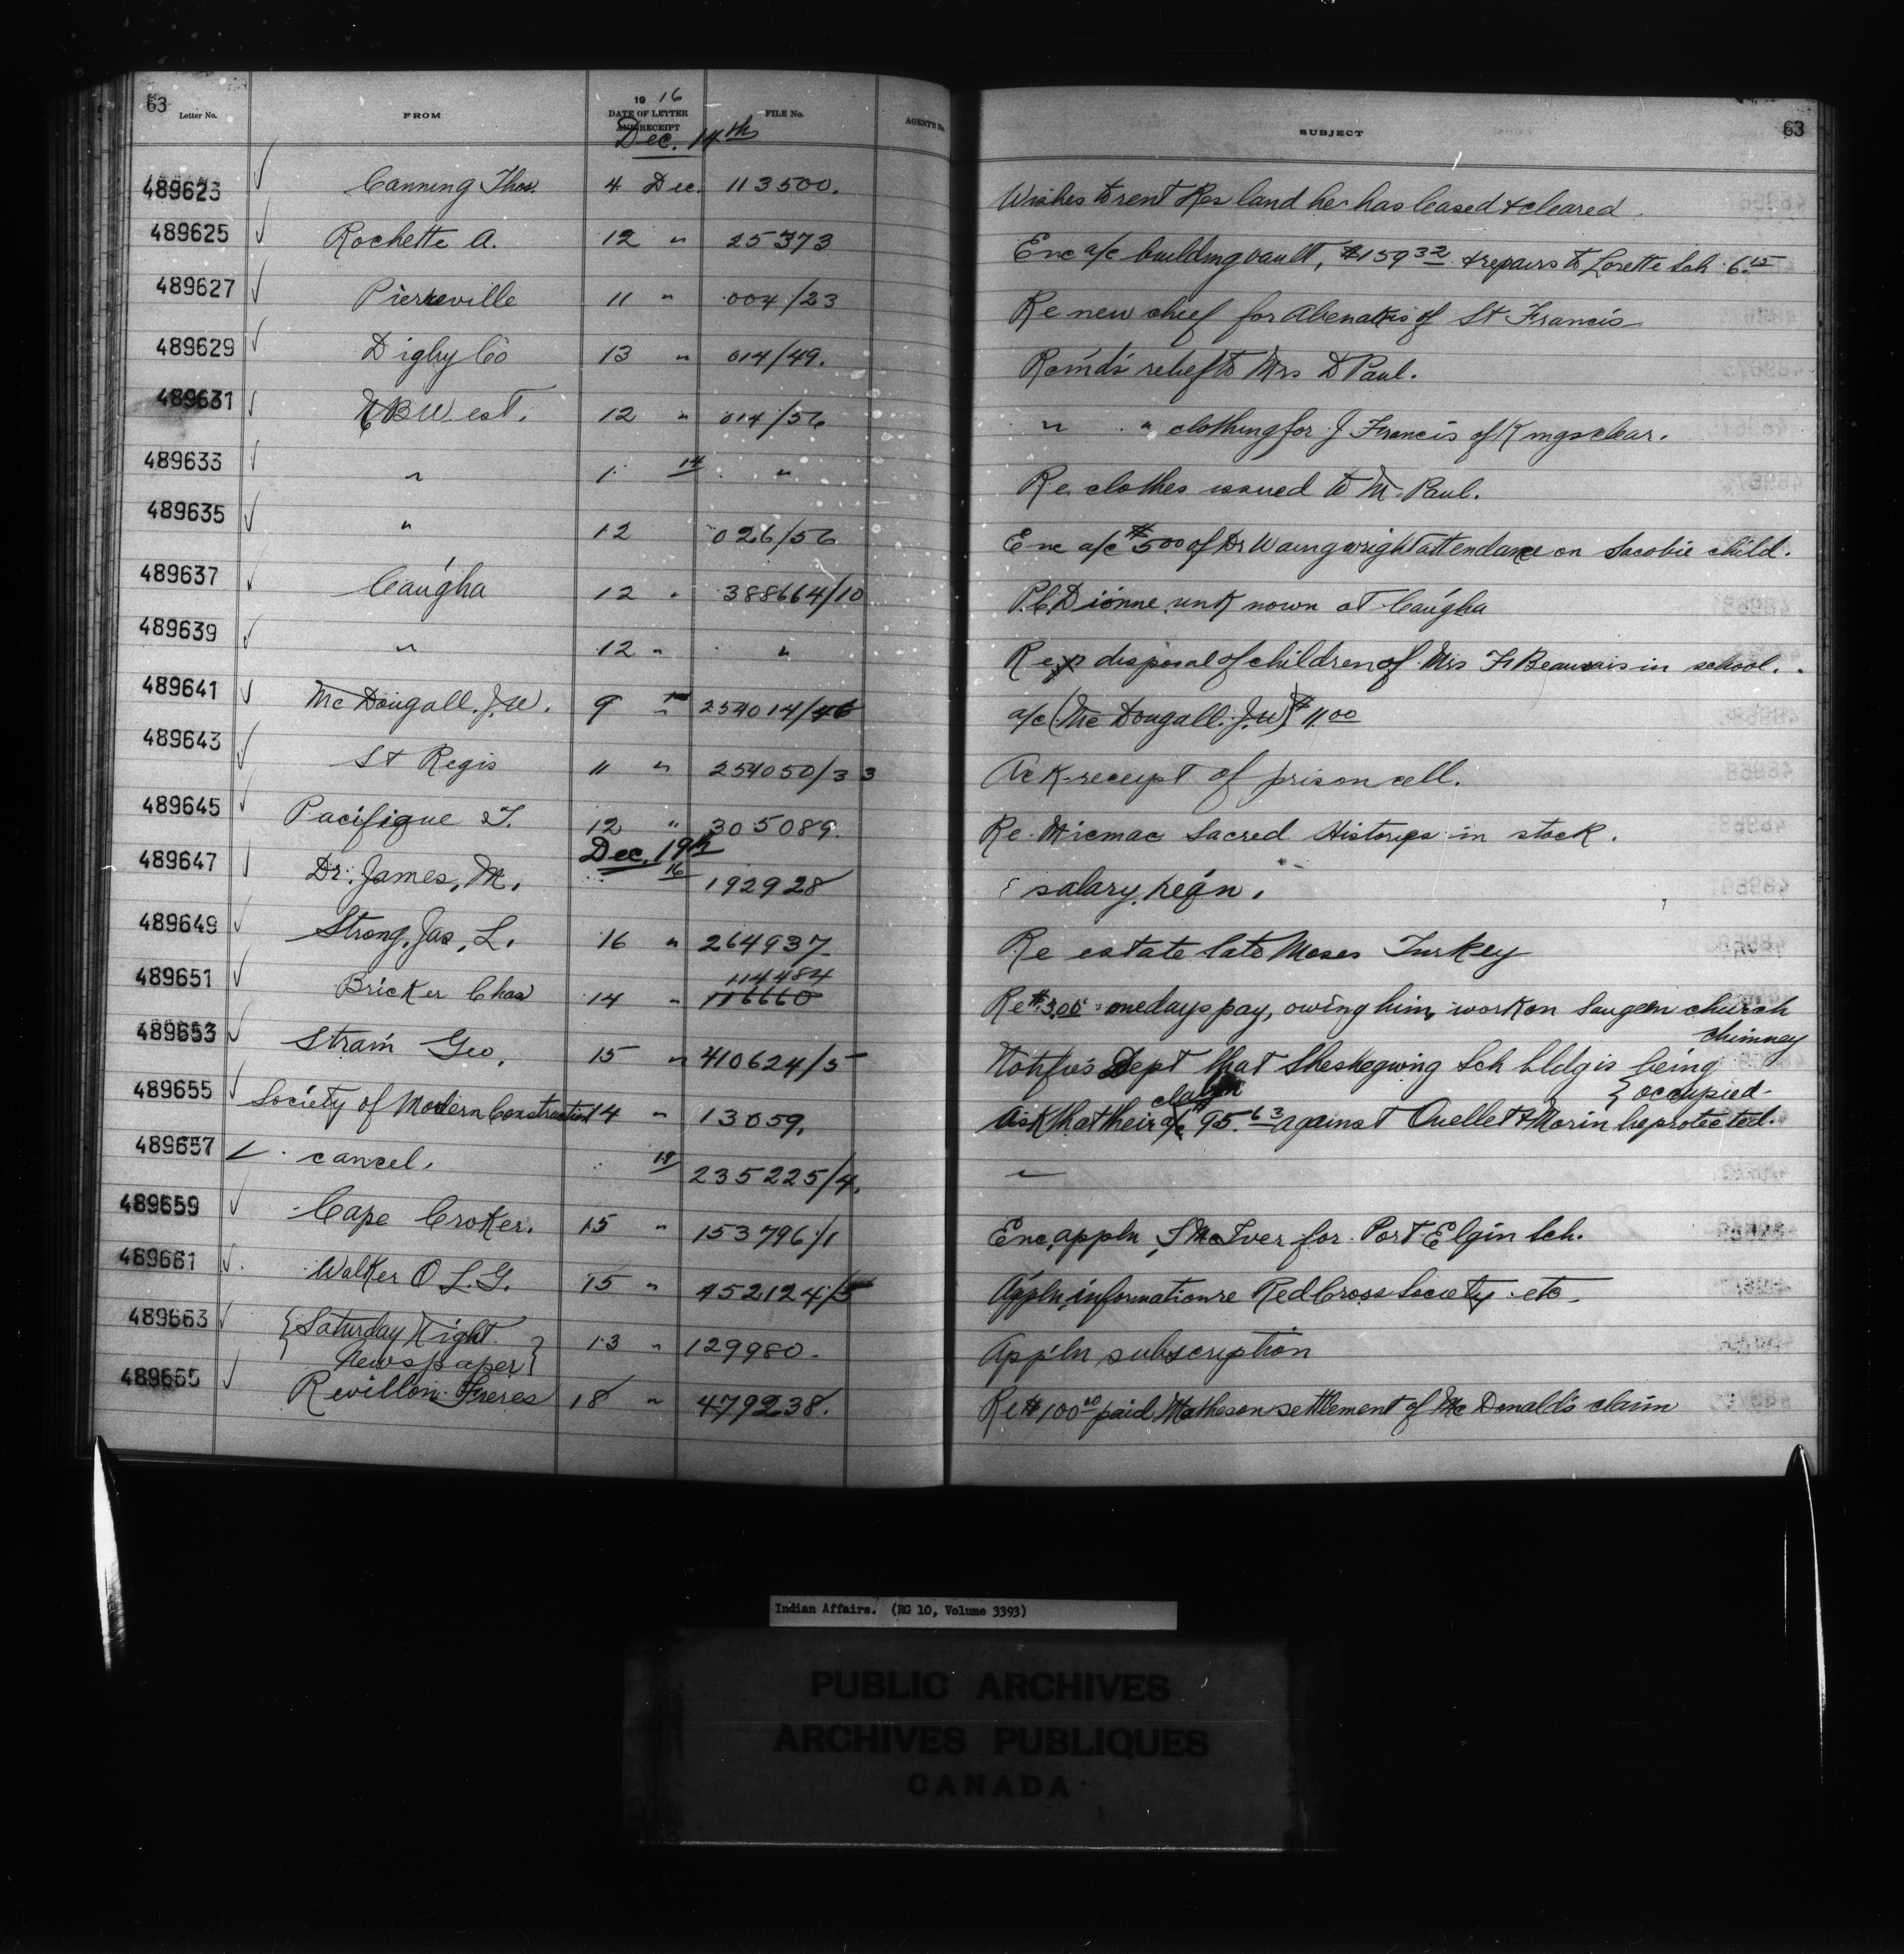 63
Letter No. FROM 19 16 DATE OF LETTER AND RECEIPT FILE No. AGENT'S No. SUBJECT 63
Dec. 14th
489623 ✓ Canning Thos. 4 Dec. 113500. Wishes to rent Res land he has leased & cleared.
489625 ✓ Rochette A. 12 " 25373 Enc a/c building vault, $159 32 & repairs to Lorette Sch 6.15
489627 ✓ Pierreville 11 " 004/23 Re new chief for Abenakis of St Francis
489629 ✓ Digby Co 13 " 014/49. Recm'ds relief to Mrs D Paul.
489631 ✓ N B West. 12 " 014/56 " " clothing for J Francis of Kingsclear.
489633 ✓ " 1 14 " Re clothes issued to M. Paul.
489635 ✓ " 12 026/56 Enc a/c $5 00 of Dr Waingwright attendance on Sacobie child.
489637 ✓ Caugha 12 " 388664/10 P.C. Dionne unknown at Caugha
489639 ✓ " 12 " " Re disposal of children of Mrs F Beauvais in school.
489641 ✓ Mc Dougall. J.W. 9 " 254014/46 a/c (Mc Dougall. J.W) $11.00
489643 ✓ St Regis 11 " 254050/33 Ack receipt of prison cell.
489645 ✓ Pacifique F. 12 " 305089. Re Micmac Sacred Historys in stock.
Dec. 19th
489647 ✓ Dr. James, M. 16 192928 salary reqn.
489649 ✓ Strong, Jas, L. 16 " 264937 Re estate late Moses Turkey
114484
489651 ✓ Bricker Chas 14 " 116660 Re $3.00 one days pay, owing him, work on Saugeen church
chimney
489653 ✓ Strain Geo, 15 " 410624/5 Notifies Dept that Sheshegwing Sch bldg is being
{ occupied
claim
489655 ✓ Society of Modern Construction 14 " 13059. Ask that their a/c 95.63 against Ouellet & Morin be protected.
489657 ✓ cancel. 19 235225/4.
489659 ✓ Cape Croker. 15 " 153796/1 Enc appln, J McIver for Port Elgin Sch.
489661 ✓ Walker O L.G. 15 " 452124/5 Appln, information re Red Cross Society etc.
489663 ✓ { Saturday Night 13 " 129980. Appln subscription
Newspaper }
489665 ✓ Revillon Freres 18 " 479238. Re $100 00 paid Matheson settlement of Mc Donald's claim
Indian Affairs. (RG 10, Volume 3393)
PUBLIC ARCHIVES
ARCHIVES PUBLIQUES
CANADA